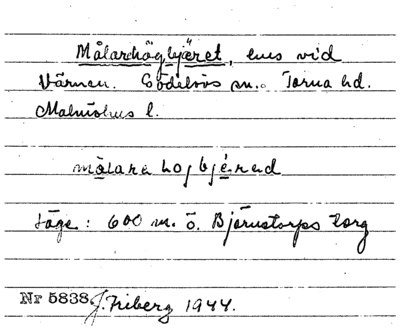 Målarhögbjäret, hus vid
Värman. Södelvös sn. Torna hd.
Malmöhus l.
målara hogbjérad
Läge: 600 m. ö. Björnstorps torg
Nr 5838 J. Friberg 1944.